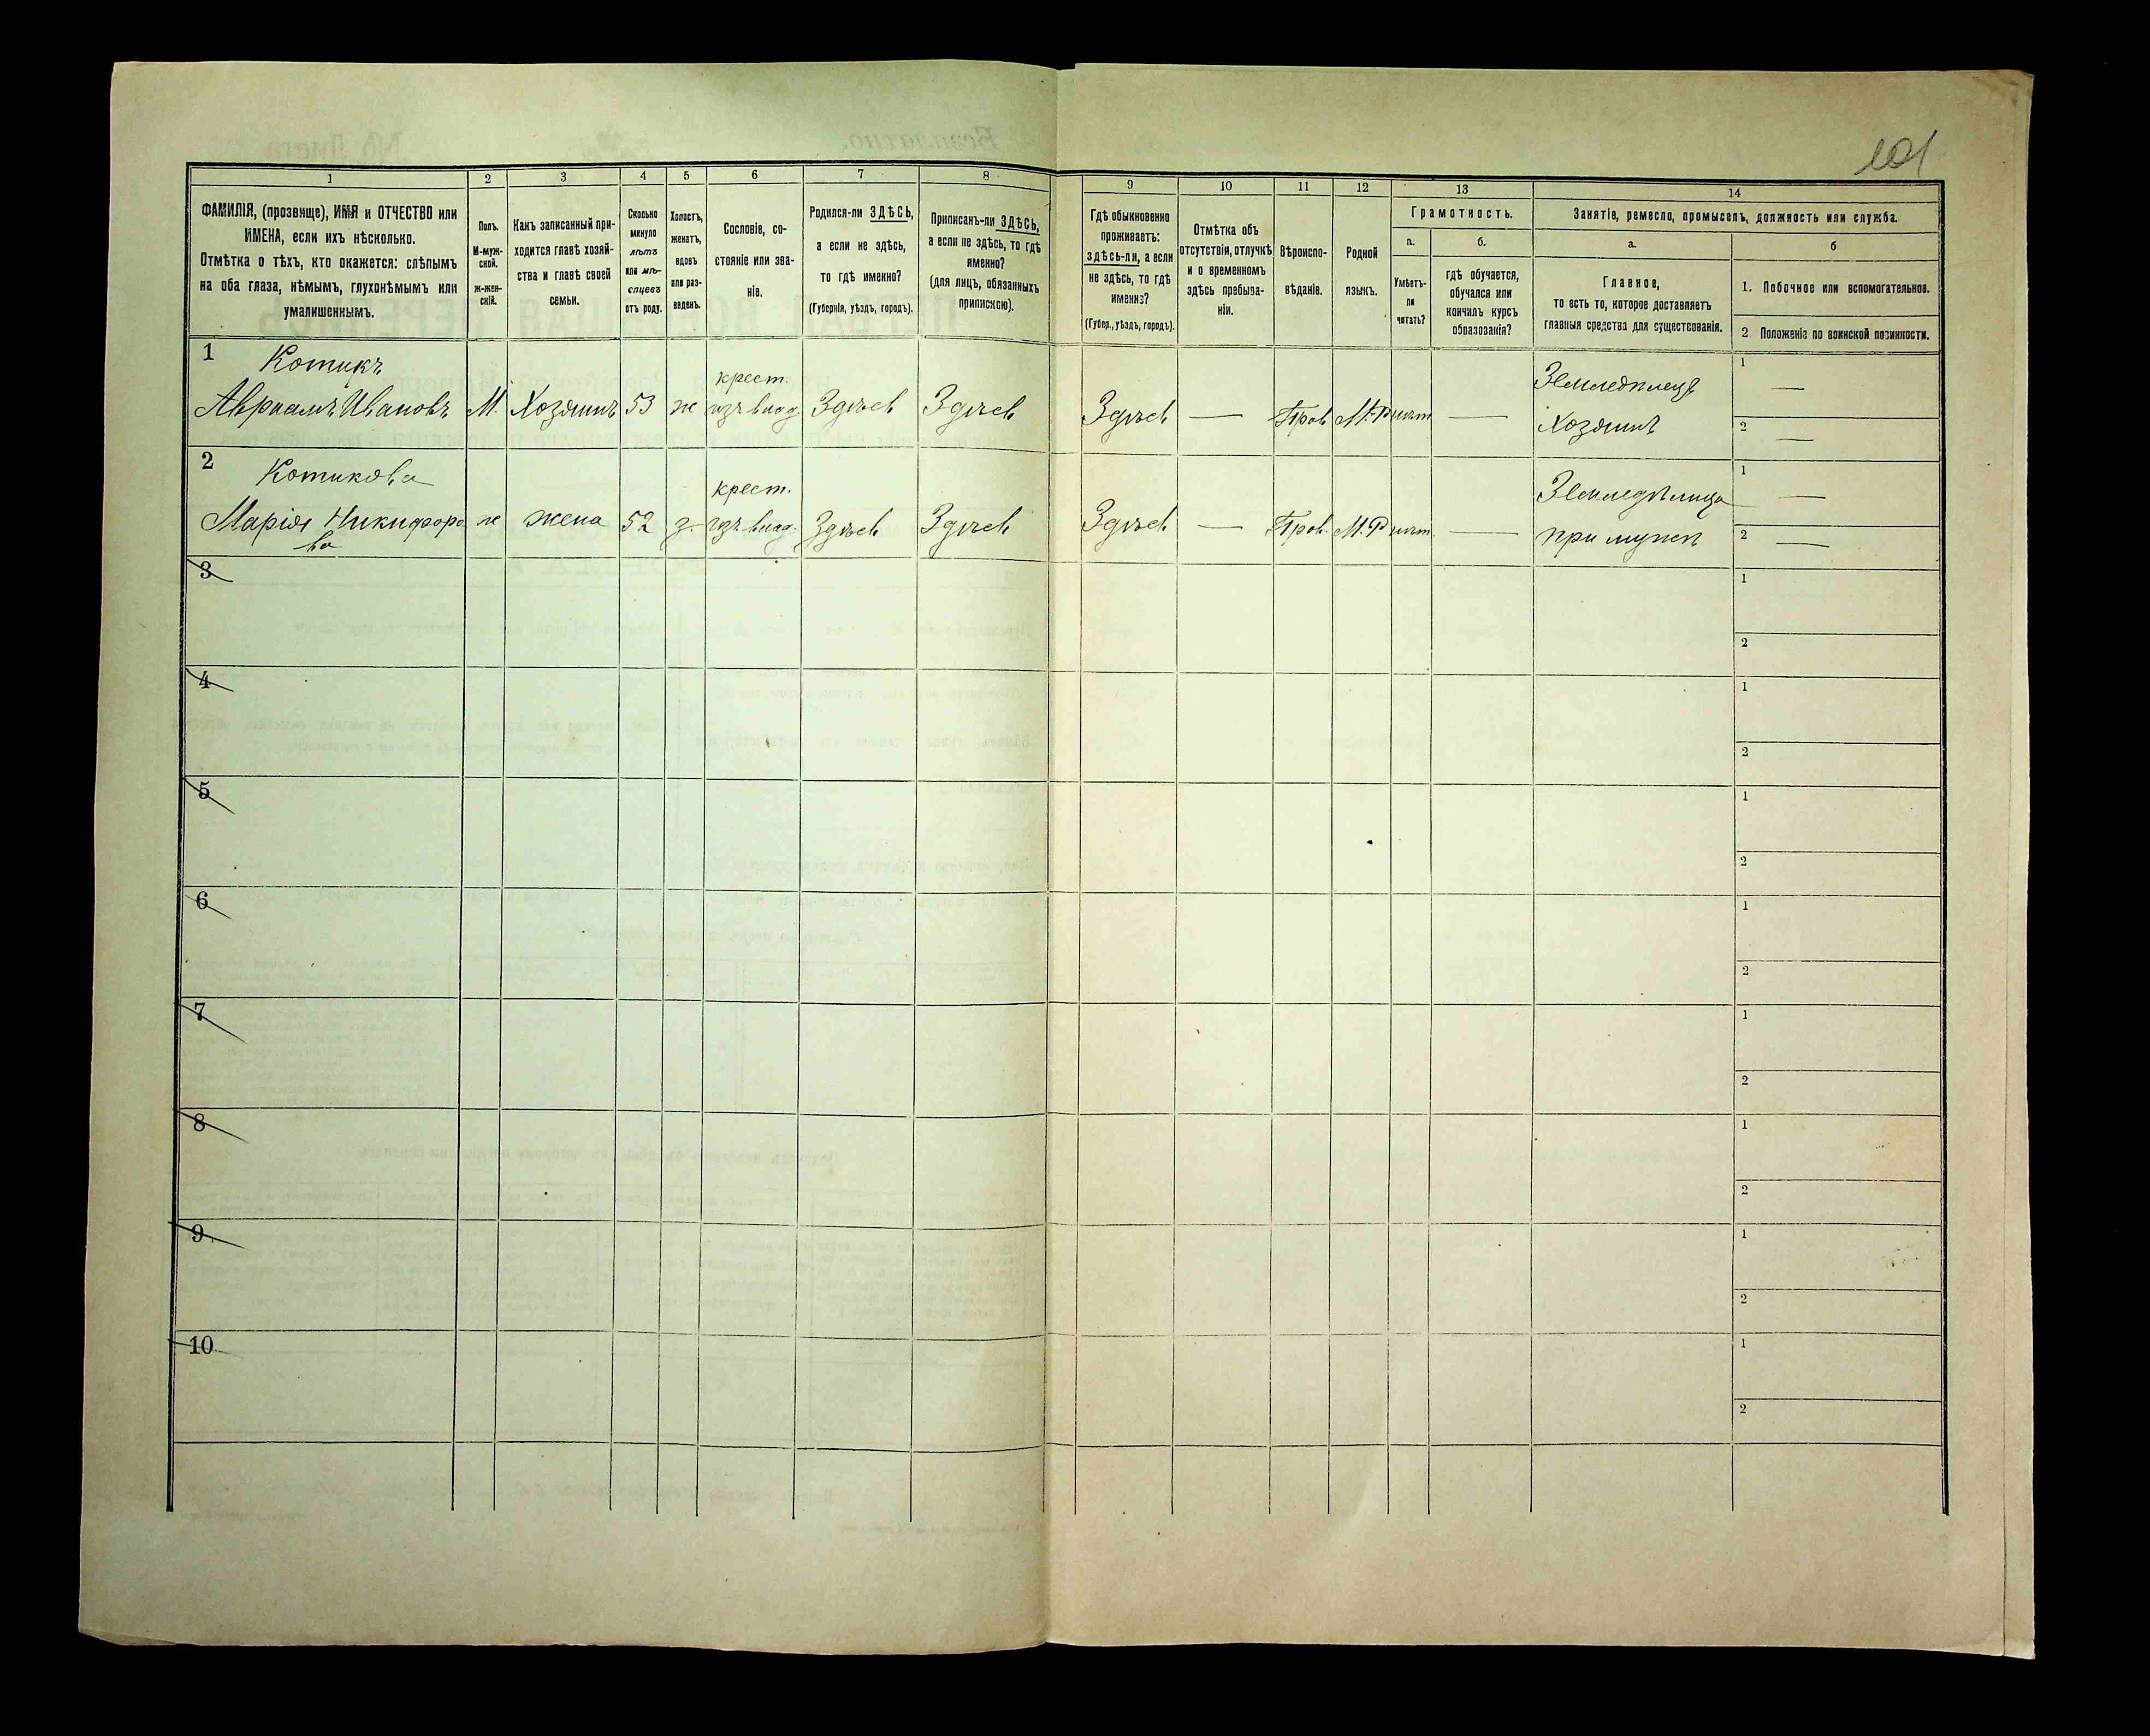 101
1
2
3
4
5
6
7
8
9
10
11
12
13
14
ФАМИЛІЯ, (прозвище), ИМЯ и ОТЧЕСТВО или
ИМЕНА, если ихъ нѣсколько.
Отмѣтка о тѣхъ, кто окажется: слѣпымъ
на оба глаза, нѣмымъ, глухонѣмымъ или
умалишеннымъ.
Полъ.
М-муж-
ской.
ж-жен-
скій.
Какъ записанный при-
ходится главѣ хозяй-
ства и главѣ своей
семьи.
Сколько
минуло
лѣтъ
или мѣ-
сяцевъ
отъ роду.
Холостъ,
женатъ,
вдовъ
или раз-
веденъ.
Сословіе, со-
стояніе или зва-
ніе.
Родился-ли ЗДѢСЬ,
а если не здѣсь,
то гдѣ именно?
(Губернія, уѣздъ, городъ).
Приписанъ-ли ЗДѢСЬ,
а если не здѣсь, то гдѣ
именно?
(для лицъ, обязанныхъ
припискою).
Гдѣ обыкновенно
проживаетъ:
здѣсь-ли, а если
не здѣсь, то гдѣ
именно?
(Губер., уѣздъ, городъ).
Отмѣтка объ
отсутствіи, отлучкѣ
и о временномъ
здѣсь пребыва-
ніи.
Вѣроиспо-
вѣданіе.
Родной
языкъ.
Грамотность.
а.
Умѣетъ-
ли
читать?
б.
гдѣ обучается,
обучался или
кончилъ курсъ
образованія?
Занятіе, ремесло, промыселъ, должность или служба.
а.
Главное,
то есть то, которое доставляетъ
главныя средства для существованія.
б
1. Побочное или вспомогательное.
2 Положеніе по воинской повинности.
1 Котикъ
Авраамъ Ивановъ М. Хозяинъ 53 ж крест. изъ влад. Здѣсь Здѣсь Здѣсь — Прав М.Р нѣт — Земледѣлецъ Хозяинъ
1 —
2 —
2 Котикова
Марія Никифоро
ва ж жена 52 з. крест. изъ влад. Здѣсь Здѣсь Здѣсь — Прав. М.Р нѣт — Земледѣлица при мужѣ
1 —
2 —
3
1
2
4
1
2
5
1
2
6
1
2
7
1
2
8
1
2
9
1
2
10
1
2